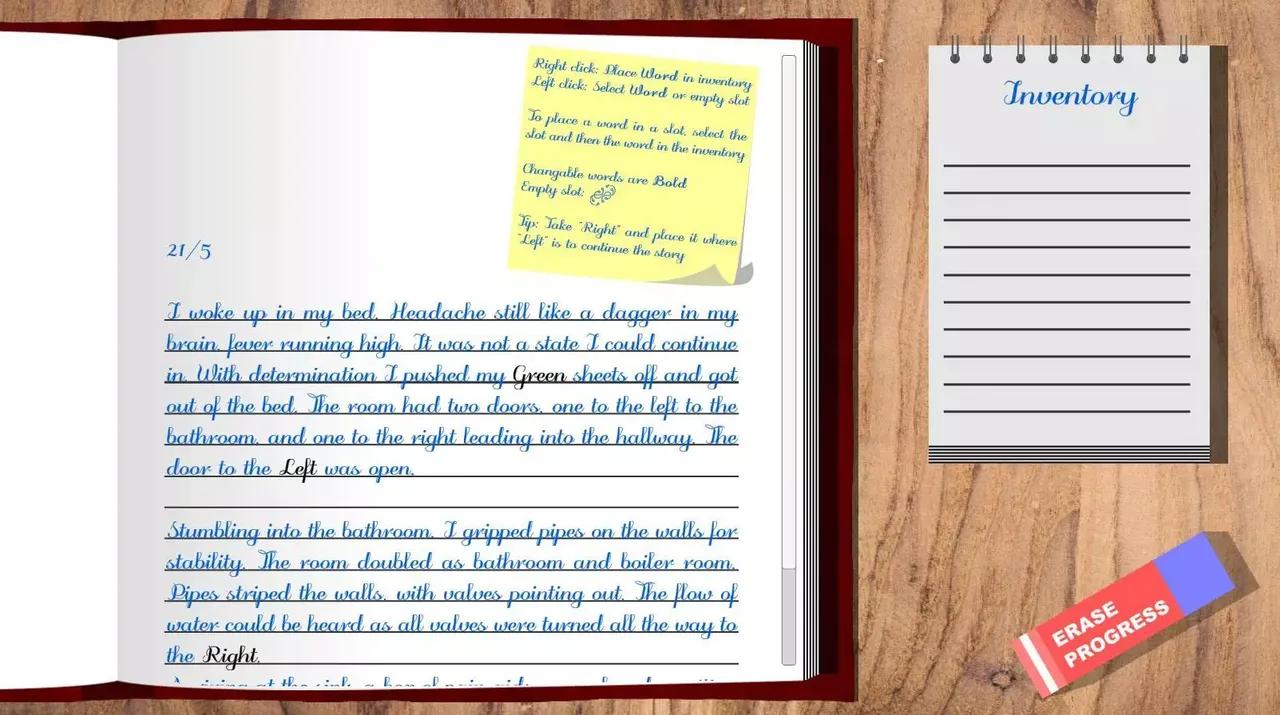 Right click: Place Word in inventory
Left click: Select Word or empty slot
To place a word in a slot, select the
slot and then the word in the inventory
Changable words are Bold
Empty slot:
Tip: Take "Right" and place it where
"Left" is to continue the story
21/5
I woke up in my bed. Headache still like a dagger in my
brain, fever running high. It was not a state I could continue
in. With determination I pushed my Green sheets off and got
out of the bed. The room had two doors, one to the left to the
bathroom, and one to the right leading into the hallway. The
door to the Left was open.
Stumbling into the bathroom, I gripped pipes on the walls for
stability. The room doubled as bathroom and boiler room.
Pipes striped the walls, with valves pointing out. The flow of
water could be heard as all valves were turned all the way to
the Right.
Inventory
ERASE
PROGRESS